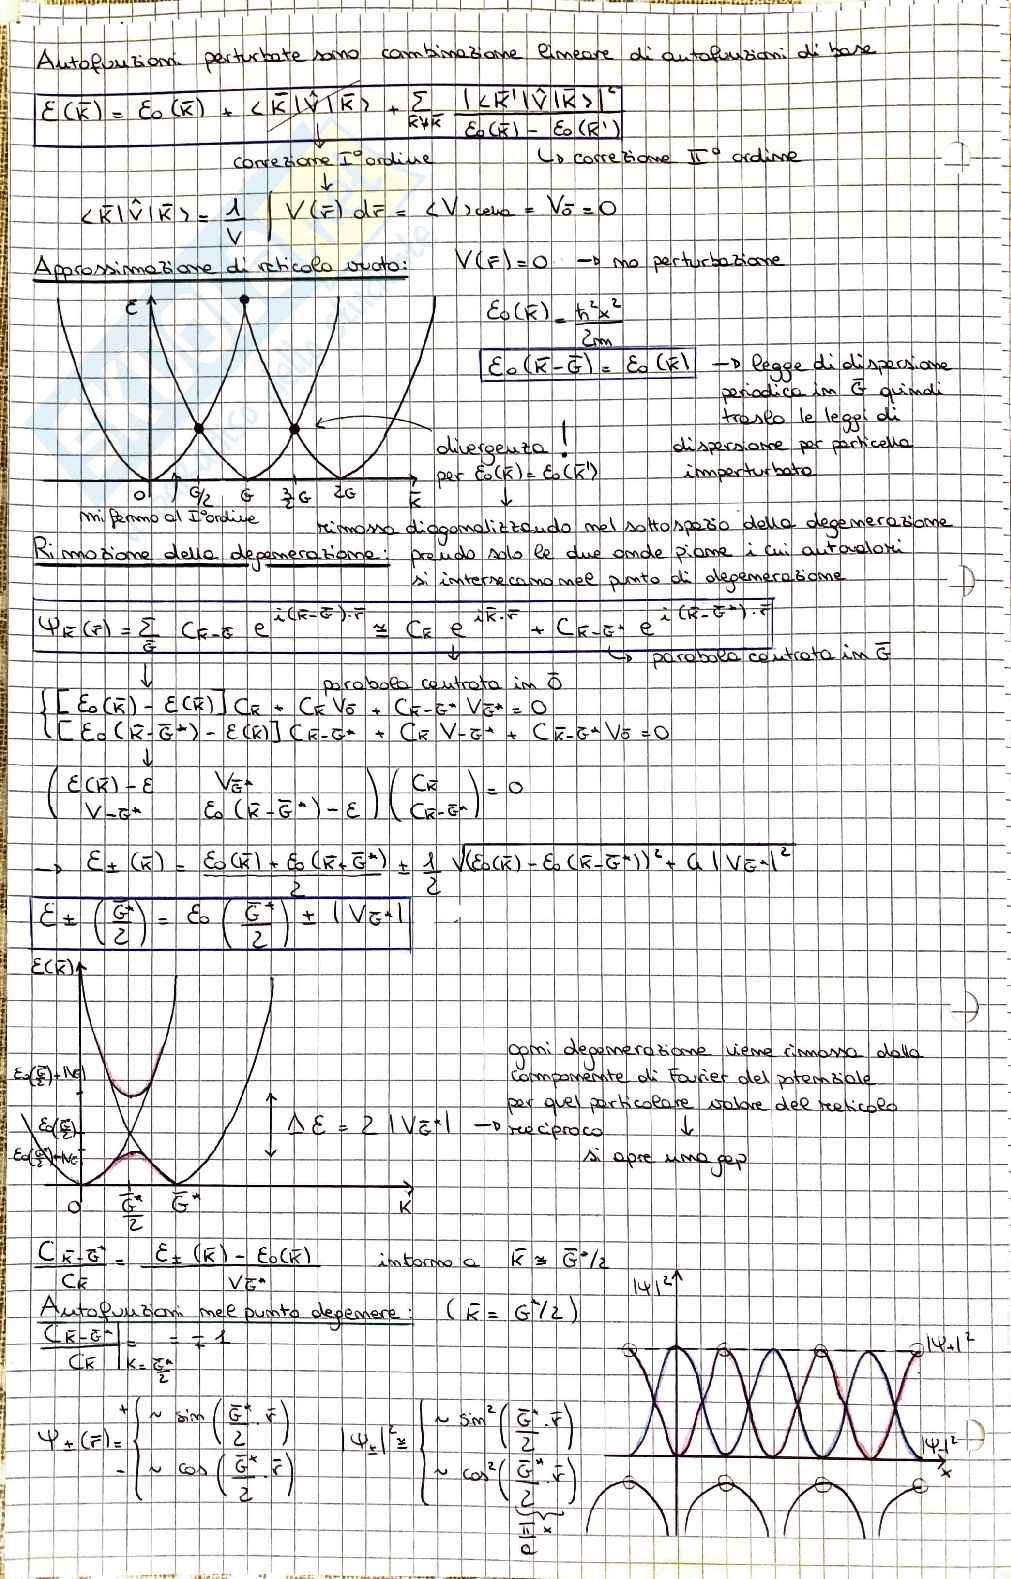 Autofunzioni perturbate sono combinazione lineare di autofunzioni di base
ε(k̄) = ε₀(k̄) + ⟨k̄|V̂|k̄⟩ + Σ_{k̄'≠k̄} |⟨k̄'|V̂|k̄⟩|² / (ε₀(k̄) - ε₀(k̄'))
correzione I° ordine ↳ correzione II° ordine
⟨k̄|V̂|k̄⟩ = 1/V ∫ V(r̄) dr̄ = ⟨V⟩cella = V_ō = 0
Approssimazione di reticolo vuoto: V(r̄) = 0 → no perturbazione
ε
ε₀(k̄) = ħ²x²/2m
ε₀(k̄-Ḡ) = ε₀(k̄) → legge di dispersione
periodica in Ḡ quindi
traslo le leggi di
dispersione per particella
imperturbata
divergenza!
per ε₀(k̄) = ε₀(k̄')
0 G/2 G 3/2 G 2G k̄
mi fermo al I° ordine
rimossa diagonalizzando nel sottospazio della degenerazione
Rimozione della degenerazione: prendo solo le due onde piane i cui autovalori
si intersecano nel punto di degenerazione
Ψ_k̄(r̄) = Σ_Ḡ C_{k̄-Ḡ} e^{i(k̄-Ḡ)·r̄} ≅ C_k̄ e^{ik̄·r̄} + C_{k̄-Ḡ*} e^{i(k̄-Ḡ*)·r̄}
↳ parabola centrata in Ḡ
parabola centrata in ō
{ [ε₀(k̄) - ε(k̄)] C_k̄ + C_k̄ V_ō + C_{k̄-Ḡ*} V_Ḡ* = 0
[ε₀(k̄-Ḡ*) - ε(k̄)] C_{k̄-Ḡ*} + C_k̄ V_{-Ḡ*} + C_{k̄-Ḡ*} V_ō = 0
( ε(k̄) - ε V_Ḡ* ) ( C_k̄ ) = 0
( V_{-Ḡ*} ε₀(k̄-Ḡ*) - ε ) ( C_{k̄-Ḡ*} )
→ ε±(k̄) = (ε₀(k̄) + ε₀(k̄+Ḡ*))/2 ± 1/2 √((ε₀(k̄) - ε₀(k̄-Ḡ*))² + 4|V_Ḡ*|²)
ε±(Ḡ*/2) = ε₀(Ḡ*/2) ± |V_Ḡ*|
ε(k̄)
ε₀(Ḡ/2)+|V_G|
ε₀(Ḡ/2)
ε₀(Ḡ/2)+|V_G|
Δε = 2|V_Ḡ*| →
ogni degenerazione viene rimossa dalla
componente di Fourier del potenziale
per quel particolare valore del reticolo
reciproco
si apre una gap
0 Ḡ*/2 Ḡ* k
C_{k̄-Ḡ*}/C_k̄ = (ε±(k̄) - ε₀(k̄))/V_Ḡ* intorno a k̄ ≅ Ḡ*/2
Autofunzioni nel punto degenere: (k̄ = G*/2)
C_{k̄-Ḡ*}/C_k̄ |_{k=Ḡ*/2} = = ∓ 1
Ψ±(r̄) = { + ~ sin(Ḡ*/2 · r̄)
- ~ cos(Ḡ*/2 · r̄)
|Ψ±|² ≅ { ~ sin²(Ḡ*/2 · r̄)
~ cos²(Ḡ*/2 · r̄)
π/a x
|Ψ|²
|Ψ+|²
|Ψ-|²
x